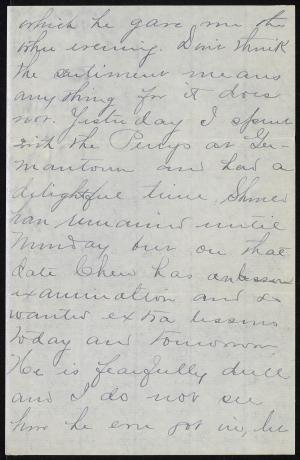 which he gave me the
other evening. Don't think
the sentiment means
anything for it does
not. Yesterday I spent
with the Perrys at Ger-
mantown and had a
delightful time. Should
have remained until
Monday but on that
date Chew has
examination and so
wanted extra lessons
today and tomorrow.
He is fearfully dull
and I do not see
how he ever got in, he